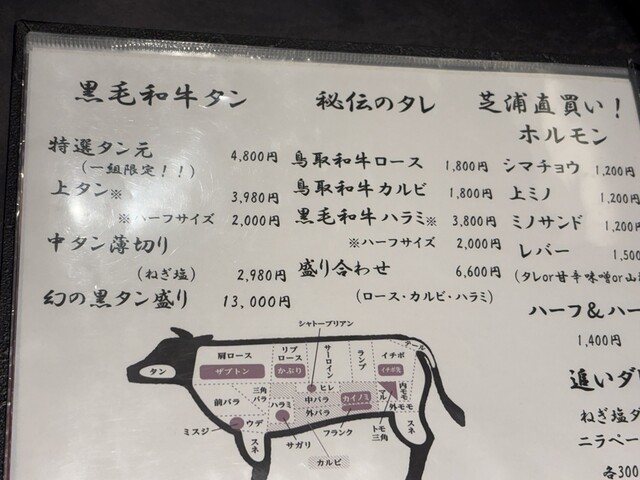 黒毛和牛タン
特選タン元 4,800円
(一組限定!!)
上タン※ 3,980円
※ハーフサイズ 2,000円
中タン薄切り
(ねぎ塩) 2,980円
幻の黒タン盛り 13,000円
秘伝のタレ
鳥取和牛ロース 1,800円
鳥取和牛カルビ 1,800円
黒毛和牛ハラミ※ 3,800円
※ハーフサイズ 2,000円
盛り合わせ 6,600円
(ロース・カルビ・ハラミ)
芝浦直買い!
ホルモン
シマチョウ 1,200円
上ミノ 1,200
ミノサンド 1,200
レバー 1,500
(タレor甘辛味噌or山
ハーフ&ハー
1,400円
追いダ
ねぎ塩ダ
ニラペー
各300
シャトーブリアン
タン
肩ロース
ザブトン
リブ
ロース
かぶり
サーロイン
ランプ
イチボ
イチボ先
テール
前バラ
三角
バラ
ハラミ
ヒレ
中バラ
外バラ
カイノミ
マル
内モモ
外モモ
ミスジ
ウデ
スネ
サガリ
フランク
トモ
三角
スネ
カルビ